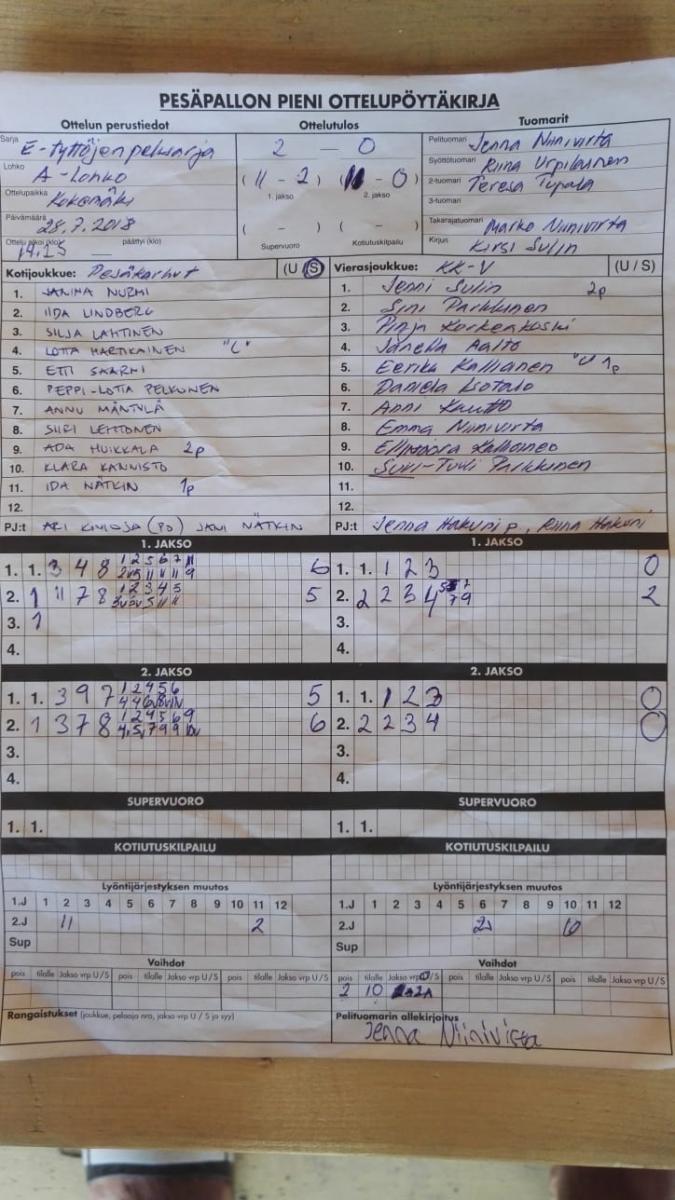 PESÄPALLON PIENI OTTELUPÖYTÄKIRJA
Ottelun perustiedot Ottelutulos Tuomarit
Sarja E-tyttöjen pelisarja
Lohko A-Lohko
Ottelupaikka Kokemäki
Päivämäärä 28.7.2018
Ottelu alkoi (klo) 14.15 päättyi (klo)
2 – 0
( 11 - 2 ) ( 11 - 0 )
1. jakso 2. jakso
( - ) ( - )
Supervuoro Kotiutuskilpailu
Pelituomari Jenna Niinivirta
Syöttötuomari Riina Urpilainen
2-tuomari Teresa Tupala
3-tuomari
Takarajatuomari Marko Niinivirta
Kirjuri Kirsi Sulin
Kotijoukkue: Pesäkarhut (U / S)
1. JANINA NURMI
2. IIDA LINDBERG
3. SILJA LAHTINEN
4. LOTTA HARTIKAINEN "C"
5. ETTI SAARNI
6. PEPPI-LOTTA PELKONEN
7. ANNU MÄNTYLÄ
8. SIIRI LEHTONEN
9. ADA HUIKKALA 2p
10. KLARA KANNISTO
11. IDA NÄTKIN 1p
12.
PJ:t ARI KIVIOJA (PD) JANI NÄTKIN
Vierasjoukkue: KK-V (U / S)
1. Jenni Sulin 2p
2. Sini Parkkunen
3. Pinja Korkeakoski
4. Janella Aalto
5. Eerika Kallianen 1p
6. Daniela
7. Anni
8. Emma Niinivirta
9.
10. Suvi-Tuuli Parkkunen
11.
12.
PJ:t Jenna Hakuni p, Riina Hakuni
1. JAKSO 1. JAKSO
1. 1. 3 4 8 1 2 5 6 7 11 6
2. 1 11 7 8 1 2 3 4 5 5
3. 1
4.
1. 1. 1 2 3 0
2. 2 2 3 4 2
3.
4.
2. JAKSO 2. JAKSO
1. 1. 3 9 7 1 2 4 5 6 5
2. 1 3 7 8 1 2 4 5 6 9 6
3.
4.
1. 1. 1 2 3 0
2. 2 2 3 4 0
3.
4.
SUPERVUORO SUPERVUORO
1. 1. 1. 1.
KOTIUTUSKILPAILU KOTIUTUSKILPAILU
Lyöntijärjestyksen muutos Lyöntijärjestyksen muutos
1.J 1 2 3 4 5 6 7 8 9 10 11 12 1.J 1 2 3 4 5 6 7 8 9 10 11 12
2.J 11 2 2.J 10
Sup Sup
Vaihdot Vaihdot
pois tilalle Jakso vrp U/S pois tilalle Jakso vrp U/S pois tilalle Jakso vrp U/S pois tilalle Jakso vrp U/S pois tilalle Jakso vrp U/S pois tilalle Jakso vrp U/S
2 10 2A
Rangaistukset (joukkue, pelaaja nro, jakso vrp U / S ja syy)
Pelituomarin allekirjoitus
Jenna Niinivirta